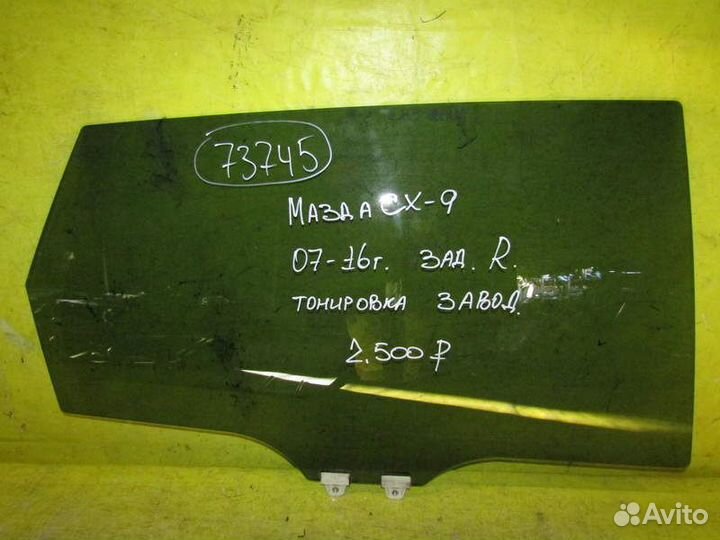 73745
МАЗДА CX-9
07-16г. ЗАД. R.
ТОНИРОВКА ЗАВОД.
2.500₽
Avito